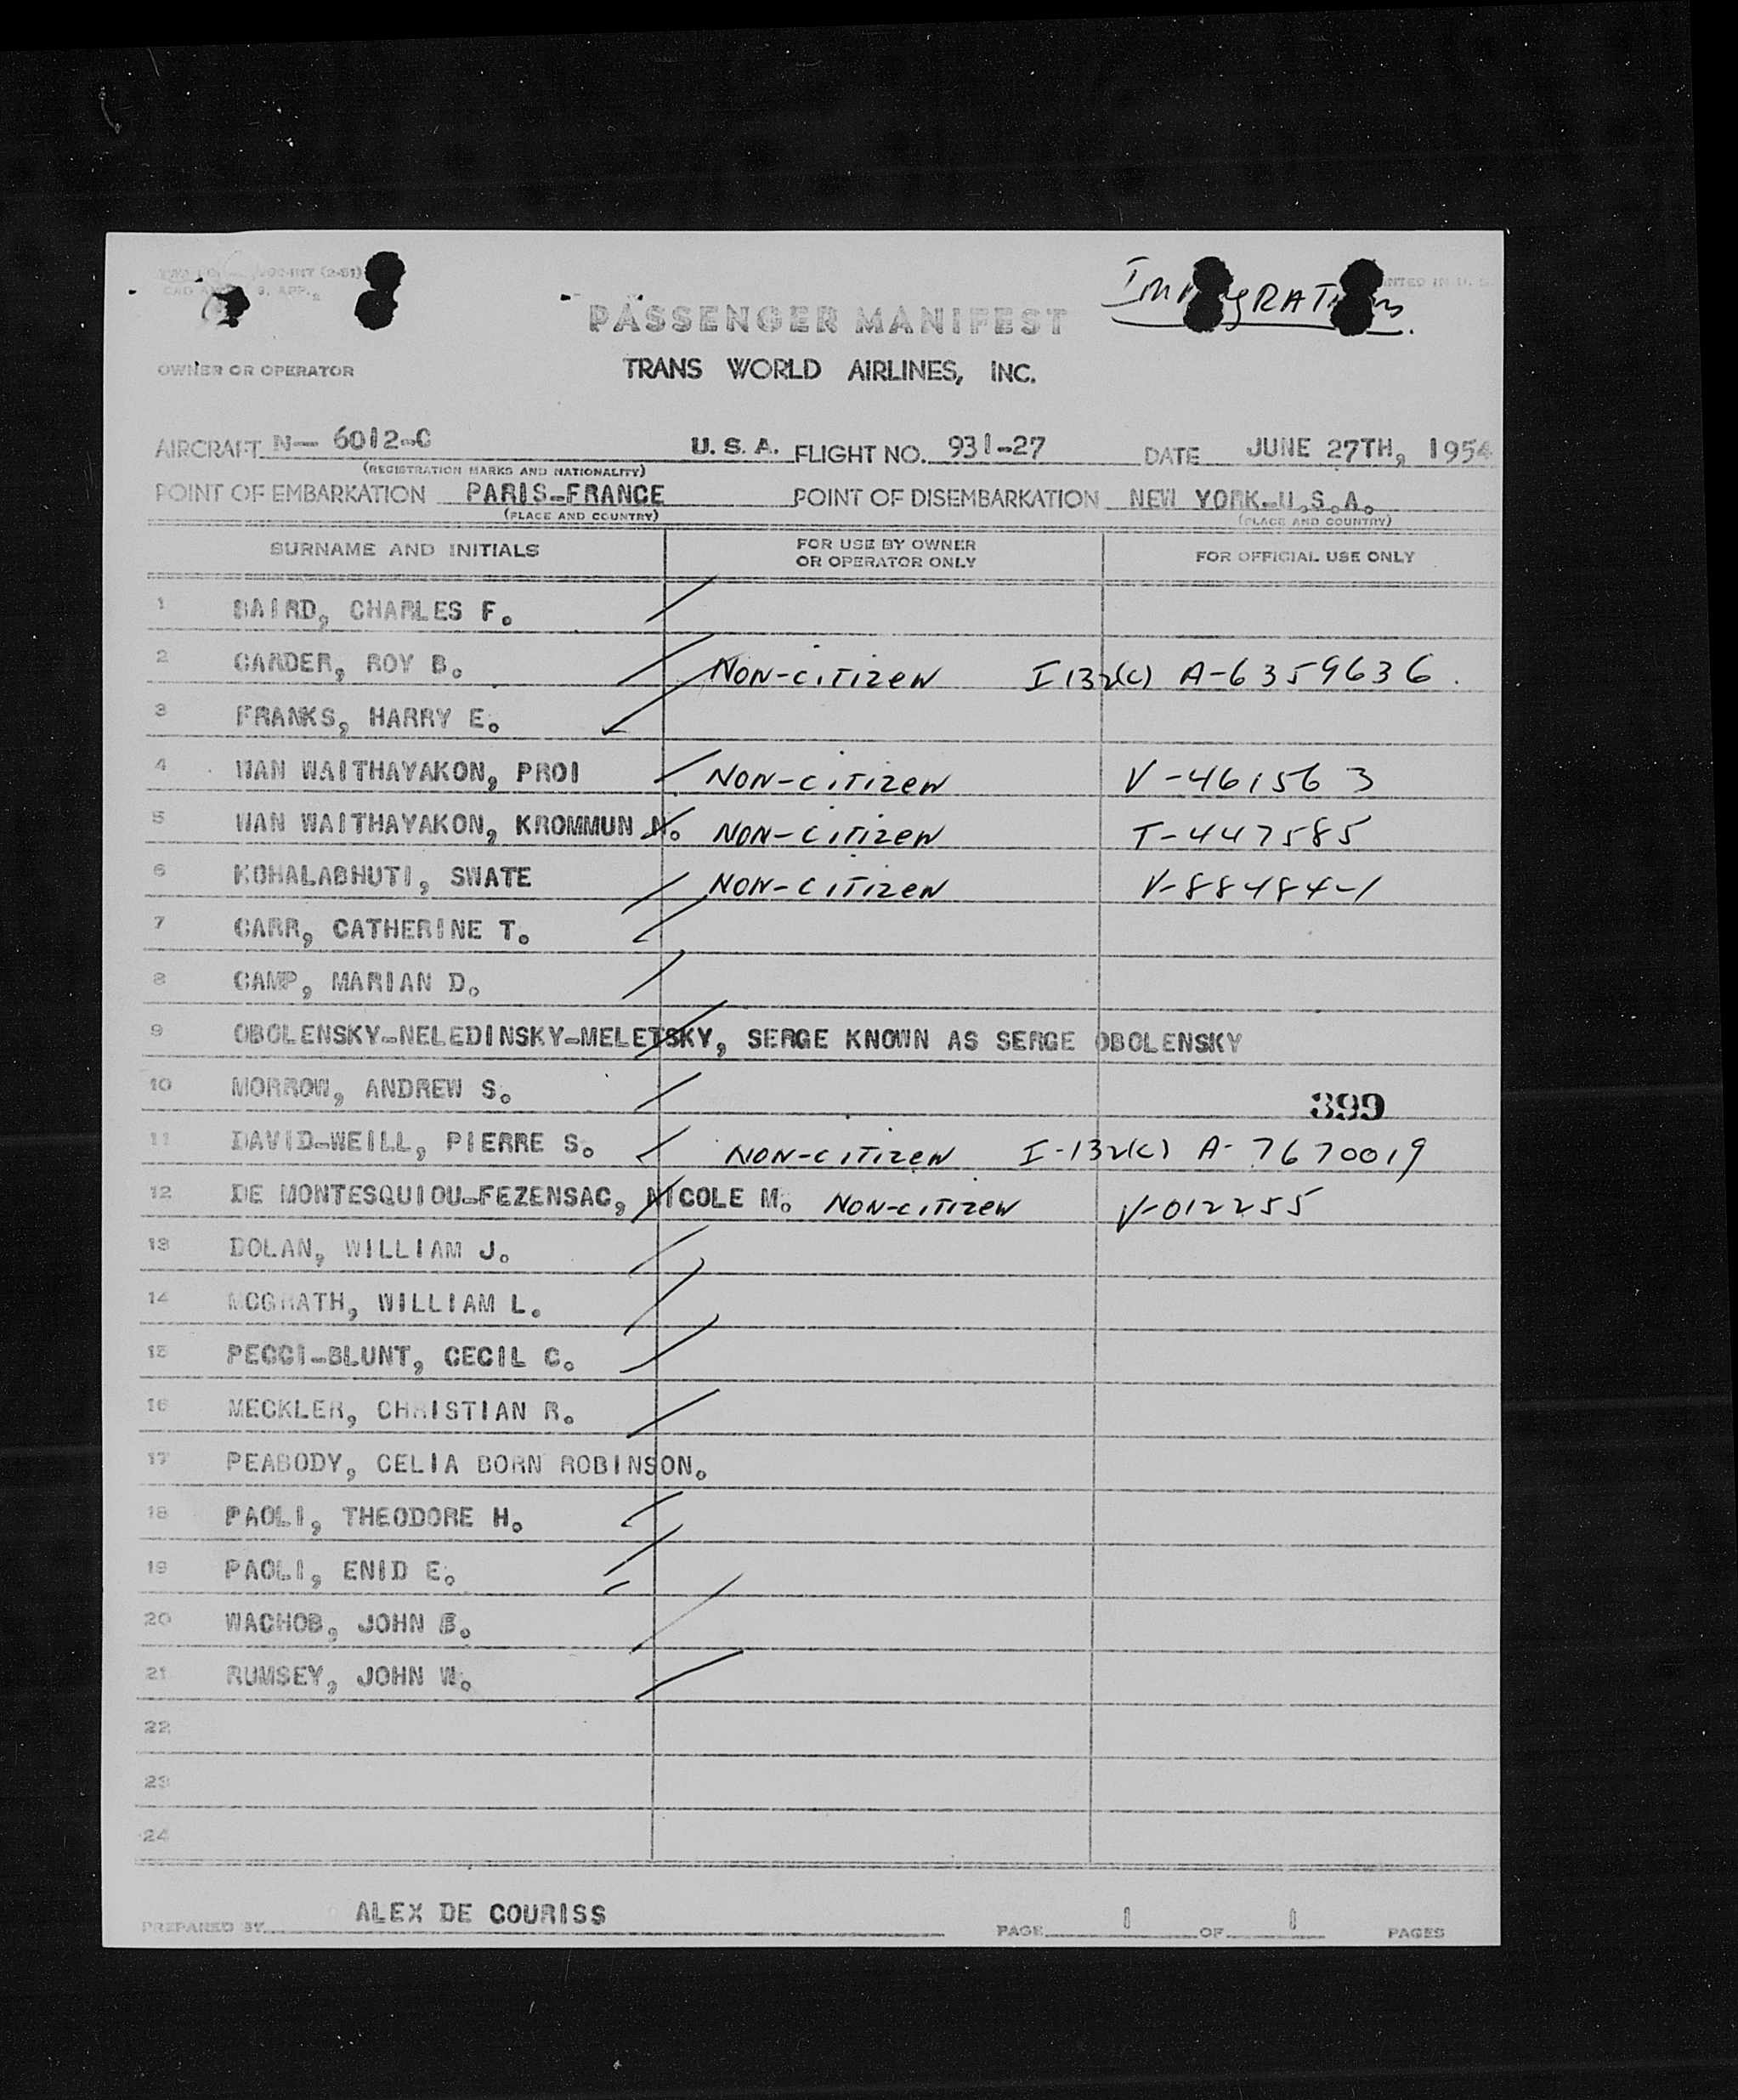 (2-51)
Immigration.
PASSENGER MANIFEST
OWNER OR OPERATOR TRANS WORLD AIRLINES, INC.
AIRCRAFT N- 6012-C U. S. A. FLIGHT NO. 931-27 DATE JUNE 27TH, 1954
(REGISTRATION MARKS AND NATIONALITY)
POINT OF EMBARKATION PARIS-FRANCE POINT OF DISEMBARKATION NEW YORK-U.S.A.
(PLACE AND COUNTRY) (PLACE AND COUNTRY)
SURNAME AND INITIALS FOR USE BY OWNER OR OPERATOR ONLY FOR OFFICIAL USE ONLY
1 BAIRD, CHARLES F.
2 CARDER, ROY B. NON-CITIZEN I 132(c) A-6359636.
3 FRANKS, HARRY E.
4 WAN WAITHAYAKON, PROI NON-CITIZEN V-461563
5 WAN WAITHAYAKON, KROMMUN N. NON-CITIZEN T-447585
6 KOHALABHUTI, SWATE NON-CITIZEN V-884841
7 CARR, CATHERINE T.
8 CAMP, MARIAN D.
9 OBOLENSKY-NELEDINSKY-MELETSKY, SERGE KNOWN AS SERGE OBOLENSKY
10 MORROW, ANDREW S.
399
11 DAVID-WEILL, PIERRE S. NON-CITIZEN I-132(c) A-7670019
12 DE MONTESQUIOU-FEZENSAC, NICOLE M. NON-CITIZEN V-012255
13 DOLAN, WILLIAM J.
14 MCGRATH, WILLIAM L.
15 PECCI-BLUNT, CECIL C.
16 MECKLER, CHRISTIAN R.
17 PEABODY, CELIA BORN ROBINSON.
18 PAOLI, THEODORE H.
19 PAOLI, ENID E.
20 WACHOB, JOHN B.
21 RUMSEY, JOHN W.
22
23
24
PREPARED BY ALEX DE COURISS PAGE 1 OF 1 PAGES